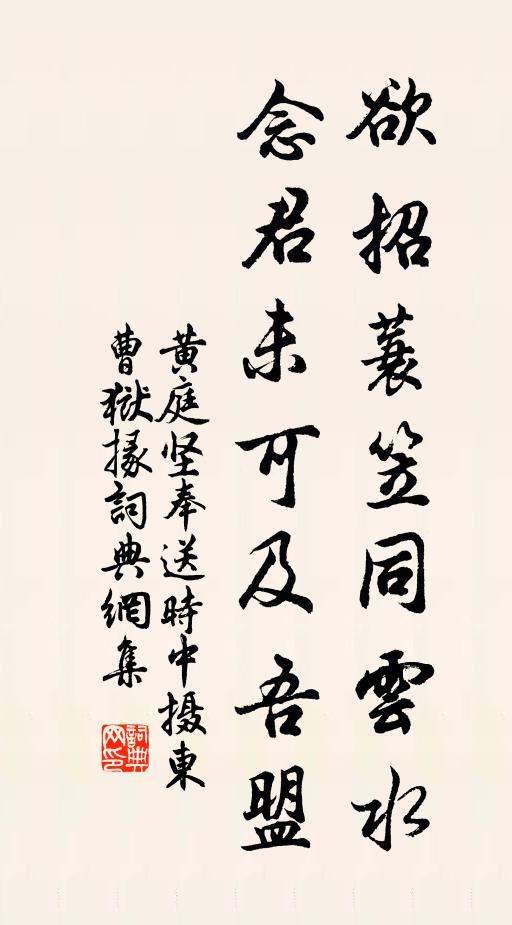 欲招蓑笠同雲水
念君未可及吾盟
黄庭坚奉送時中摄東
曹獄掾詞典網集
詞典网印